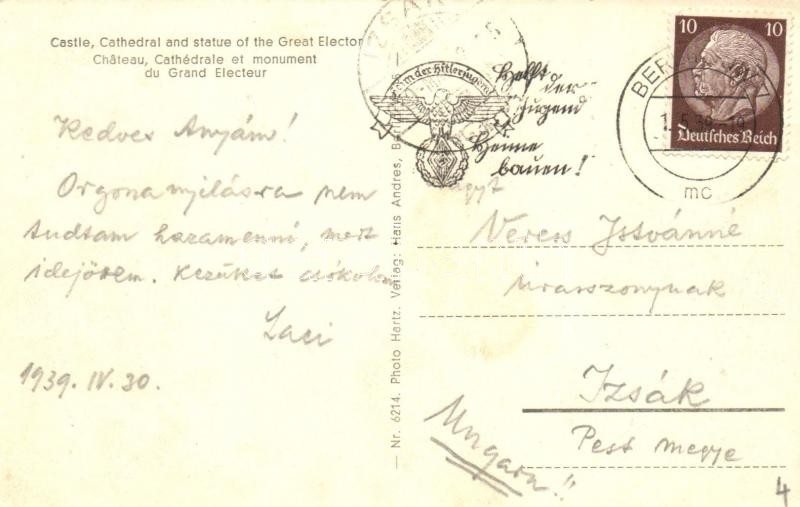 Castle, Cathedral and statue of the Great Elector
Château, Cathédrale et monument
du Grand Electeur
Kedves Anyám!
Orgonanyilásra nem
tudtam hazamenni, mert
idejöttem. Kezüket csókolom
Laci
1939. IV. 30.
— Nr. 6214. Photo Hartz. Verlag: Hans Andres, Berlin
IZSÁK
der Hitlerjugend
Helft
der
Jugend
Heime
bauen!
BERLIN
1.5.39
mc
10 10
Deutsches Reich
Nagyt
Veress Istvánné
úrasszonynak
Izsák
Pest megye
Ungarn!!
4